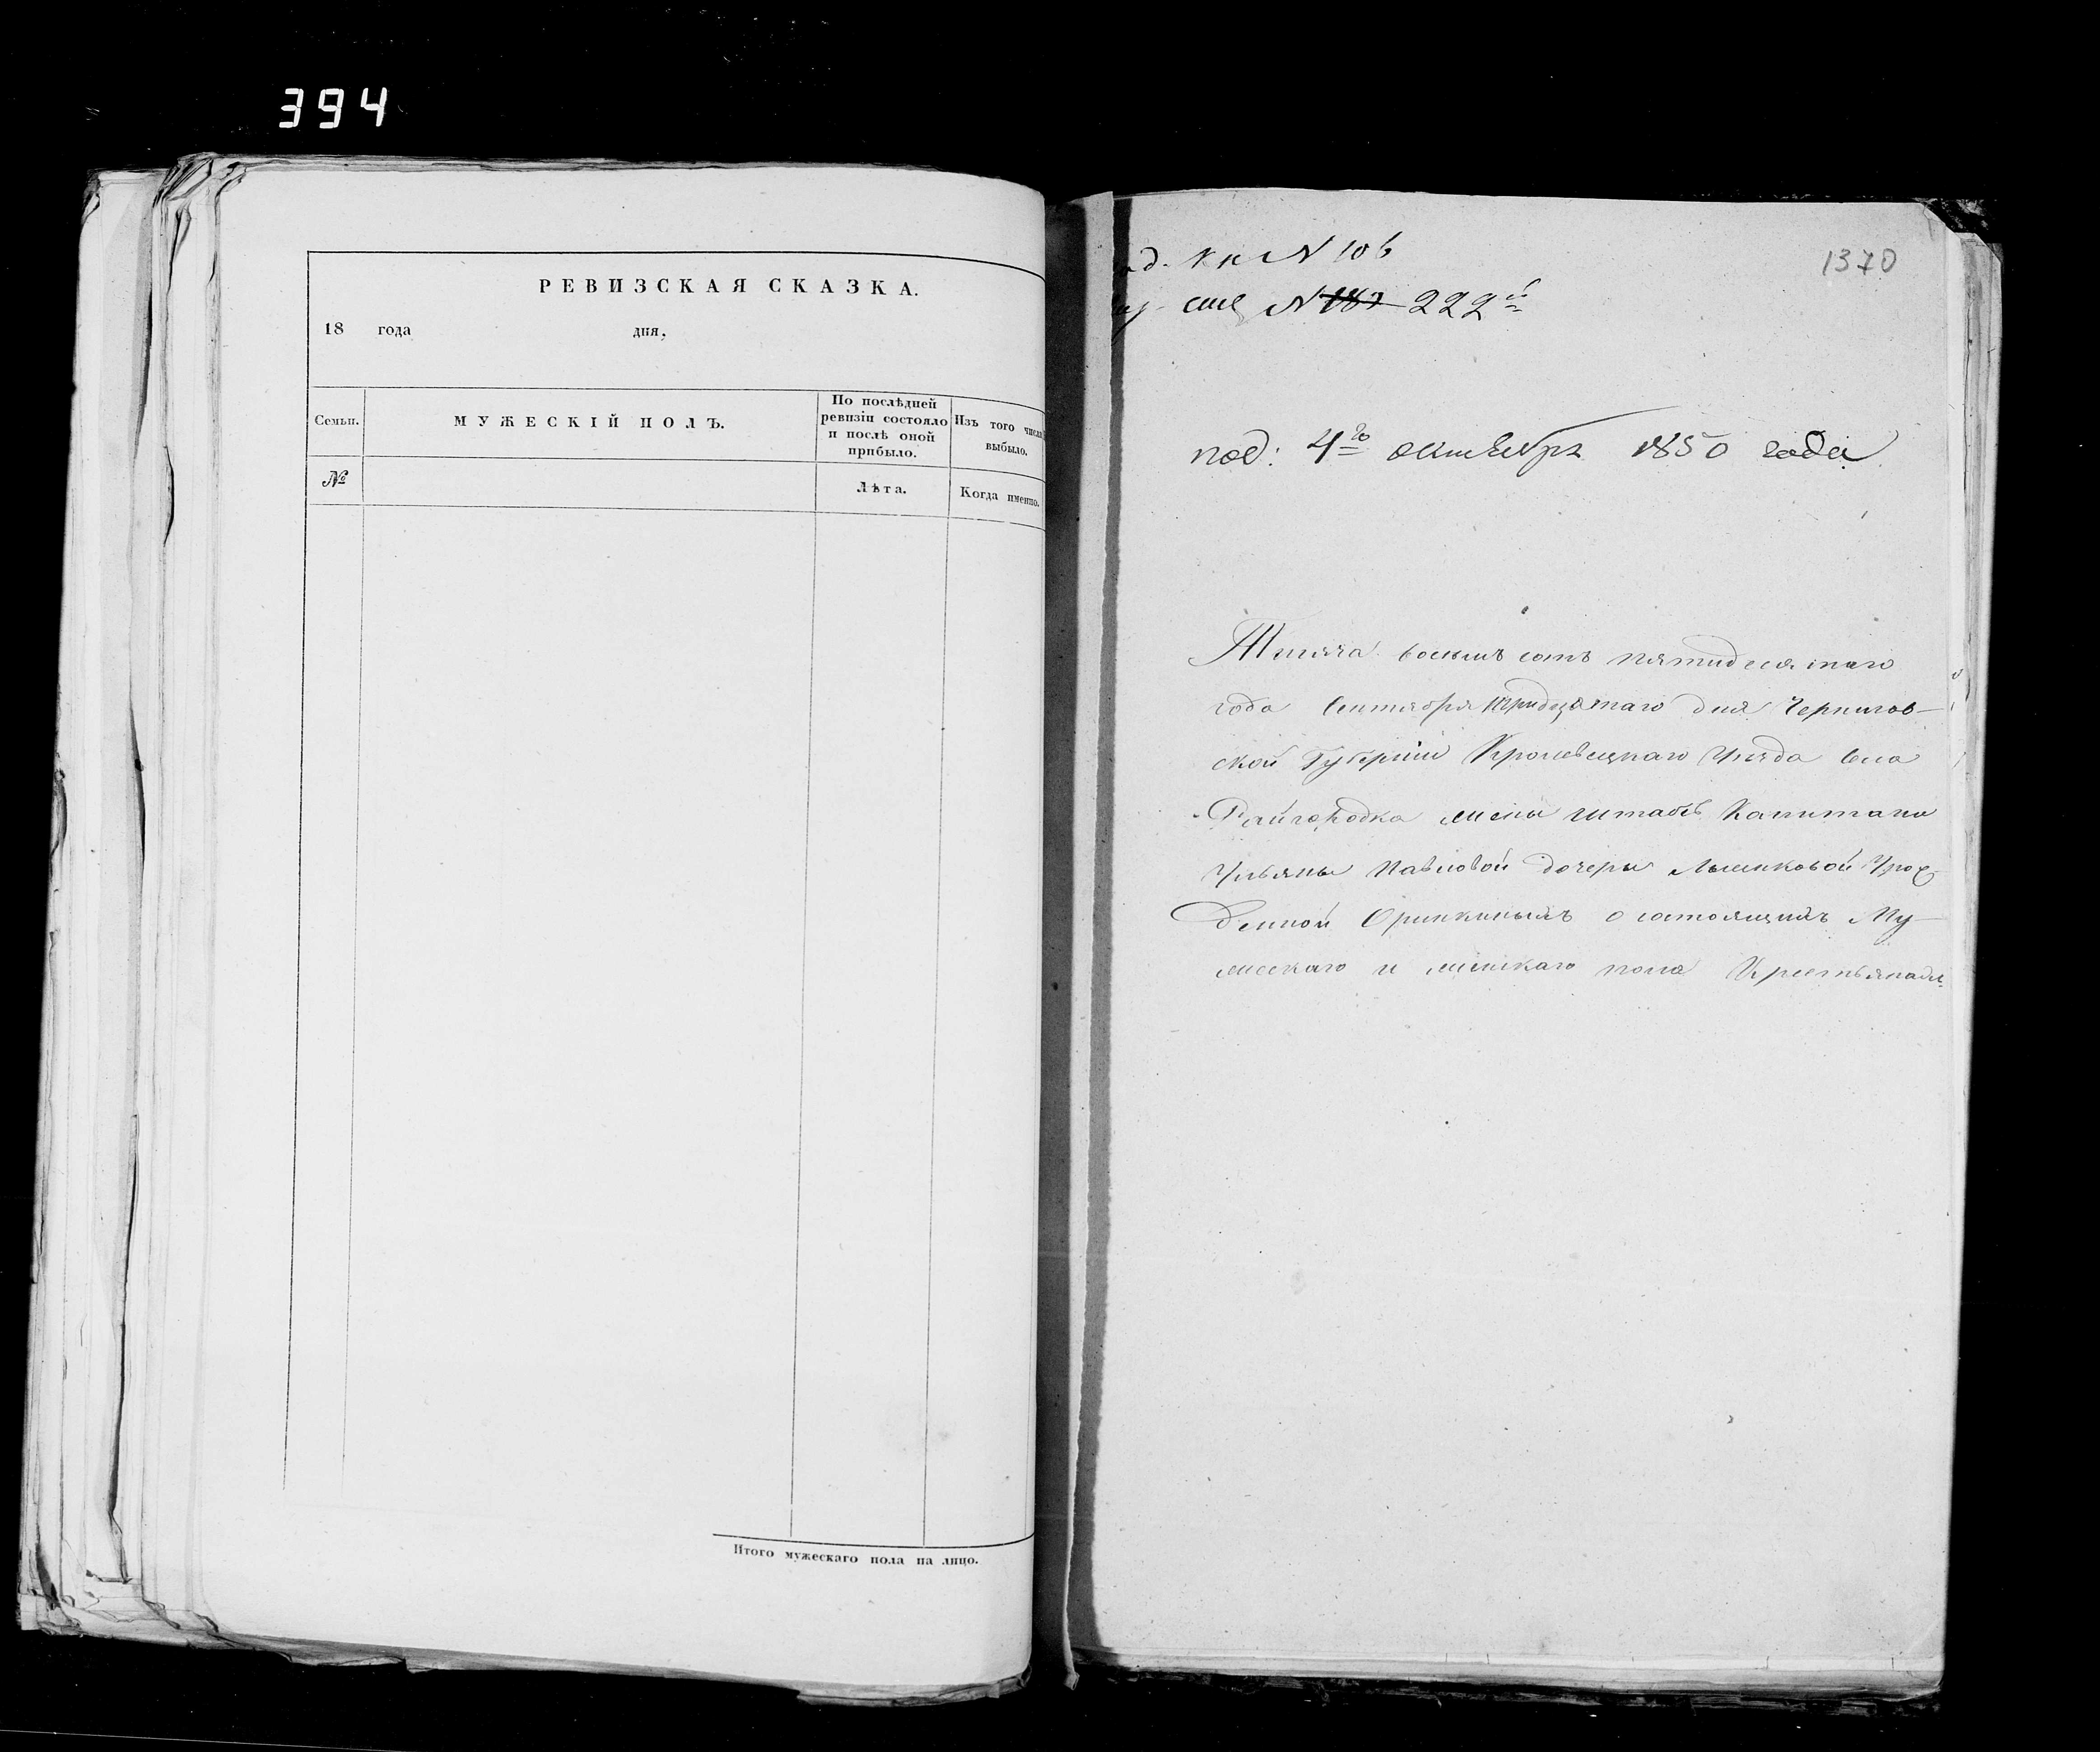 394
РЕВИЗСКАЯ СКАЗКА.
18 года дня,
Семьи.
МУЖЕСКІЙ ПОЛЪ.
По послѣдней
ревизіи состояло
и послѣ оной
прибыло.
Изъ того числа
выбыло.
№
Лѣта.
Когда именно.
Итого мужескаго пола на лицо.
N 106
1370
N 222
под: 4го октября 1850 года
Тысяча восемь сотъ пятидесятаго
года Сентября тридцятаго дня Чернигов-
ской Губерніи Кролевецкаго Уезда Села
Райгородка жены штабсъ Капитана
Ульяны Павловой дочери Урож-
денной о состоящихъ Му
жескаго и женскаго пола Крестьянахъ